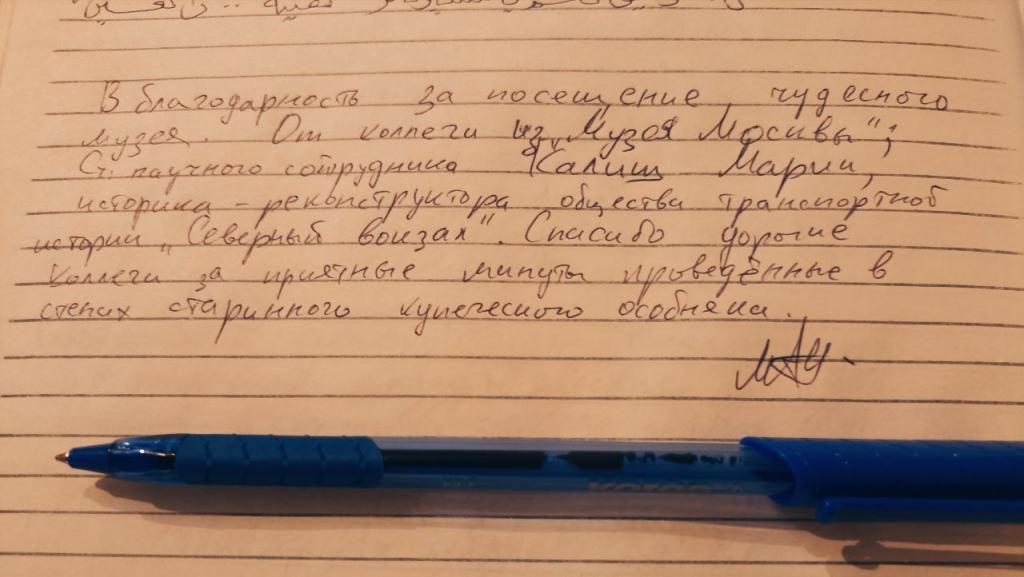 В благодарность за посещение чудесного
музея. От коллеги из „Музея Москвы";
Ст. научного сотрудника Калиш Марии,
историка - реконструктора общества транспортной
истории „Северный вокзал". Спасибо дорогие
коллеги за приятные минуты проведённые в
стенах старинного купеческого особняка.